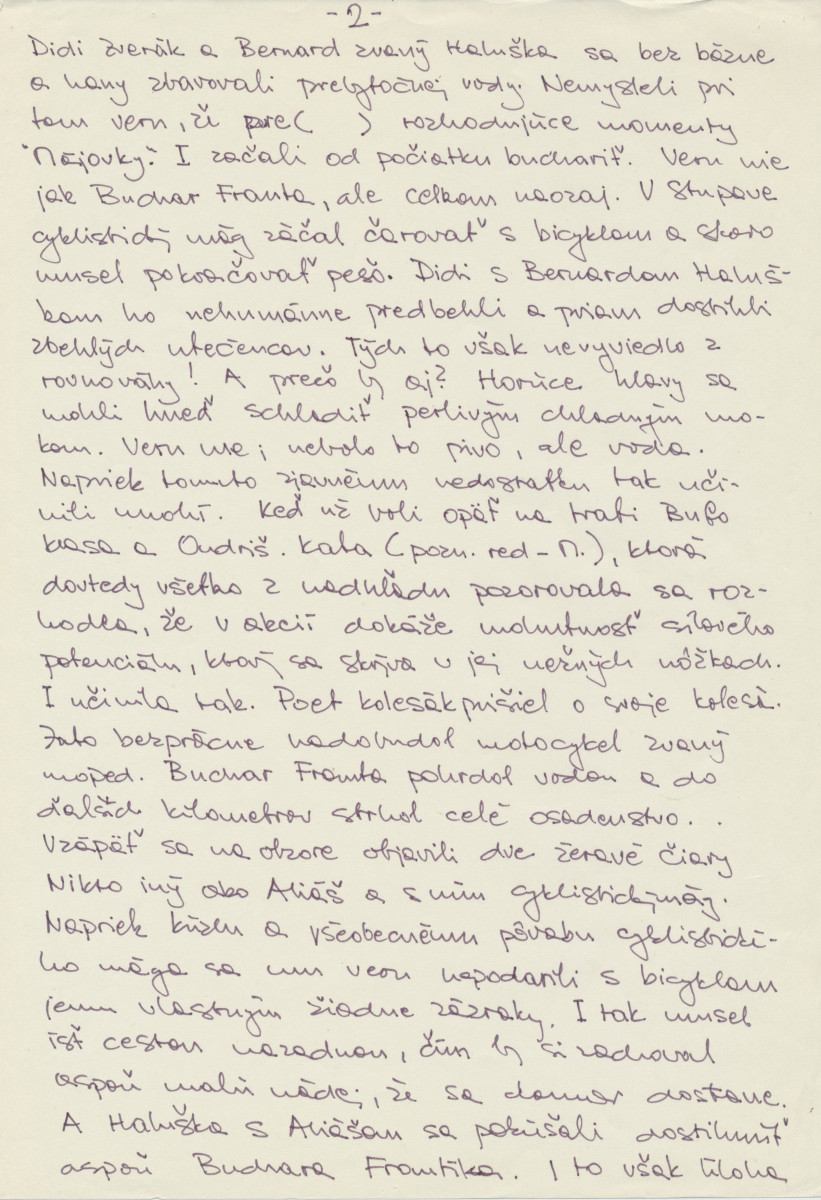 -2-
Didi zverák a Bernard zvaný Haluška sa bez bázne
a hany zbavovali prebytočnej vody. Nemysleli pri
tom veru, či pre( ) rozhodujúce momenty
"Májovky". I začali od počiatku buchariť. Veru nie
jak Buchar Franta, ale celkom naozaj. V Stupave
cyklistický mág začal čarovať s bicyklom a skoro
musel pokračovať pešo. Didi s Bernardom Haluš-
kom ho nehumánne predbehli a priam dostihli
zbehlých utečencov. Tých to však nevyviedlo z
rovnováhy! A prečo by aj? Horúce hlavy sa
mohli hneď schladiť perlivým chladným mo-
kom. Veru nie; nebolo to pivo, ale voda.
Napriek tomuto zjavnému nedostatku tak uči-
nili mnohí. Keď už boli opäť na trati Bufo
krasa a Ondriš. Kata (pozn. red - M.), ktorá
dovtedy všetko z nadhľadu pozorovala sa roz-
hodla, že v akcií dokáže mohutnosť silového
potenciálu, ktorý sa skrýva v jej nežných nôžkach.
I učinila tak. Poet kolesák prišiel o svoje kolesá.
Zato bezprácne nadobudol motocykel zvaný
moped. Buchar Franta pohrdol vodou a do
ďalších kilometrov strhol celé osadenstvo. .
Vzápäť sa na obzore objavili dve žeravé čiary
Nikto iný ako Aliáš a s ním cyklistický mág.
Napriek kúzlu a všeobecnému pôvabu cyklistické-
ho mága sa mu veru nepodarili s bicyklom
jemu vlastným žiadne zázraky. I tak musel
ísť cestou nazadnou, čím by si zachoval
aspoň malú nádej, že sa domov dostane.
A Haluška s Aliášom sa pokúšali dostihnúť
aspoň Buchara Frantíka. I to však úloha